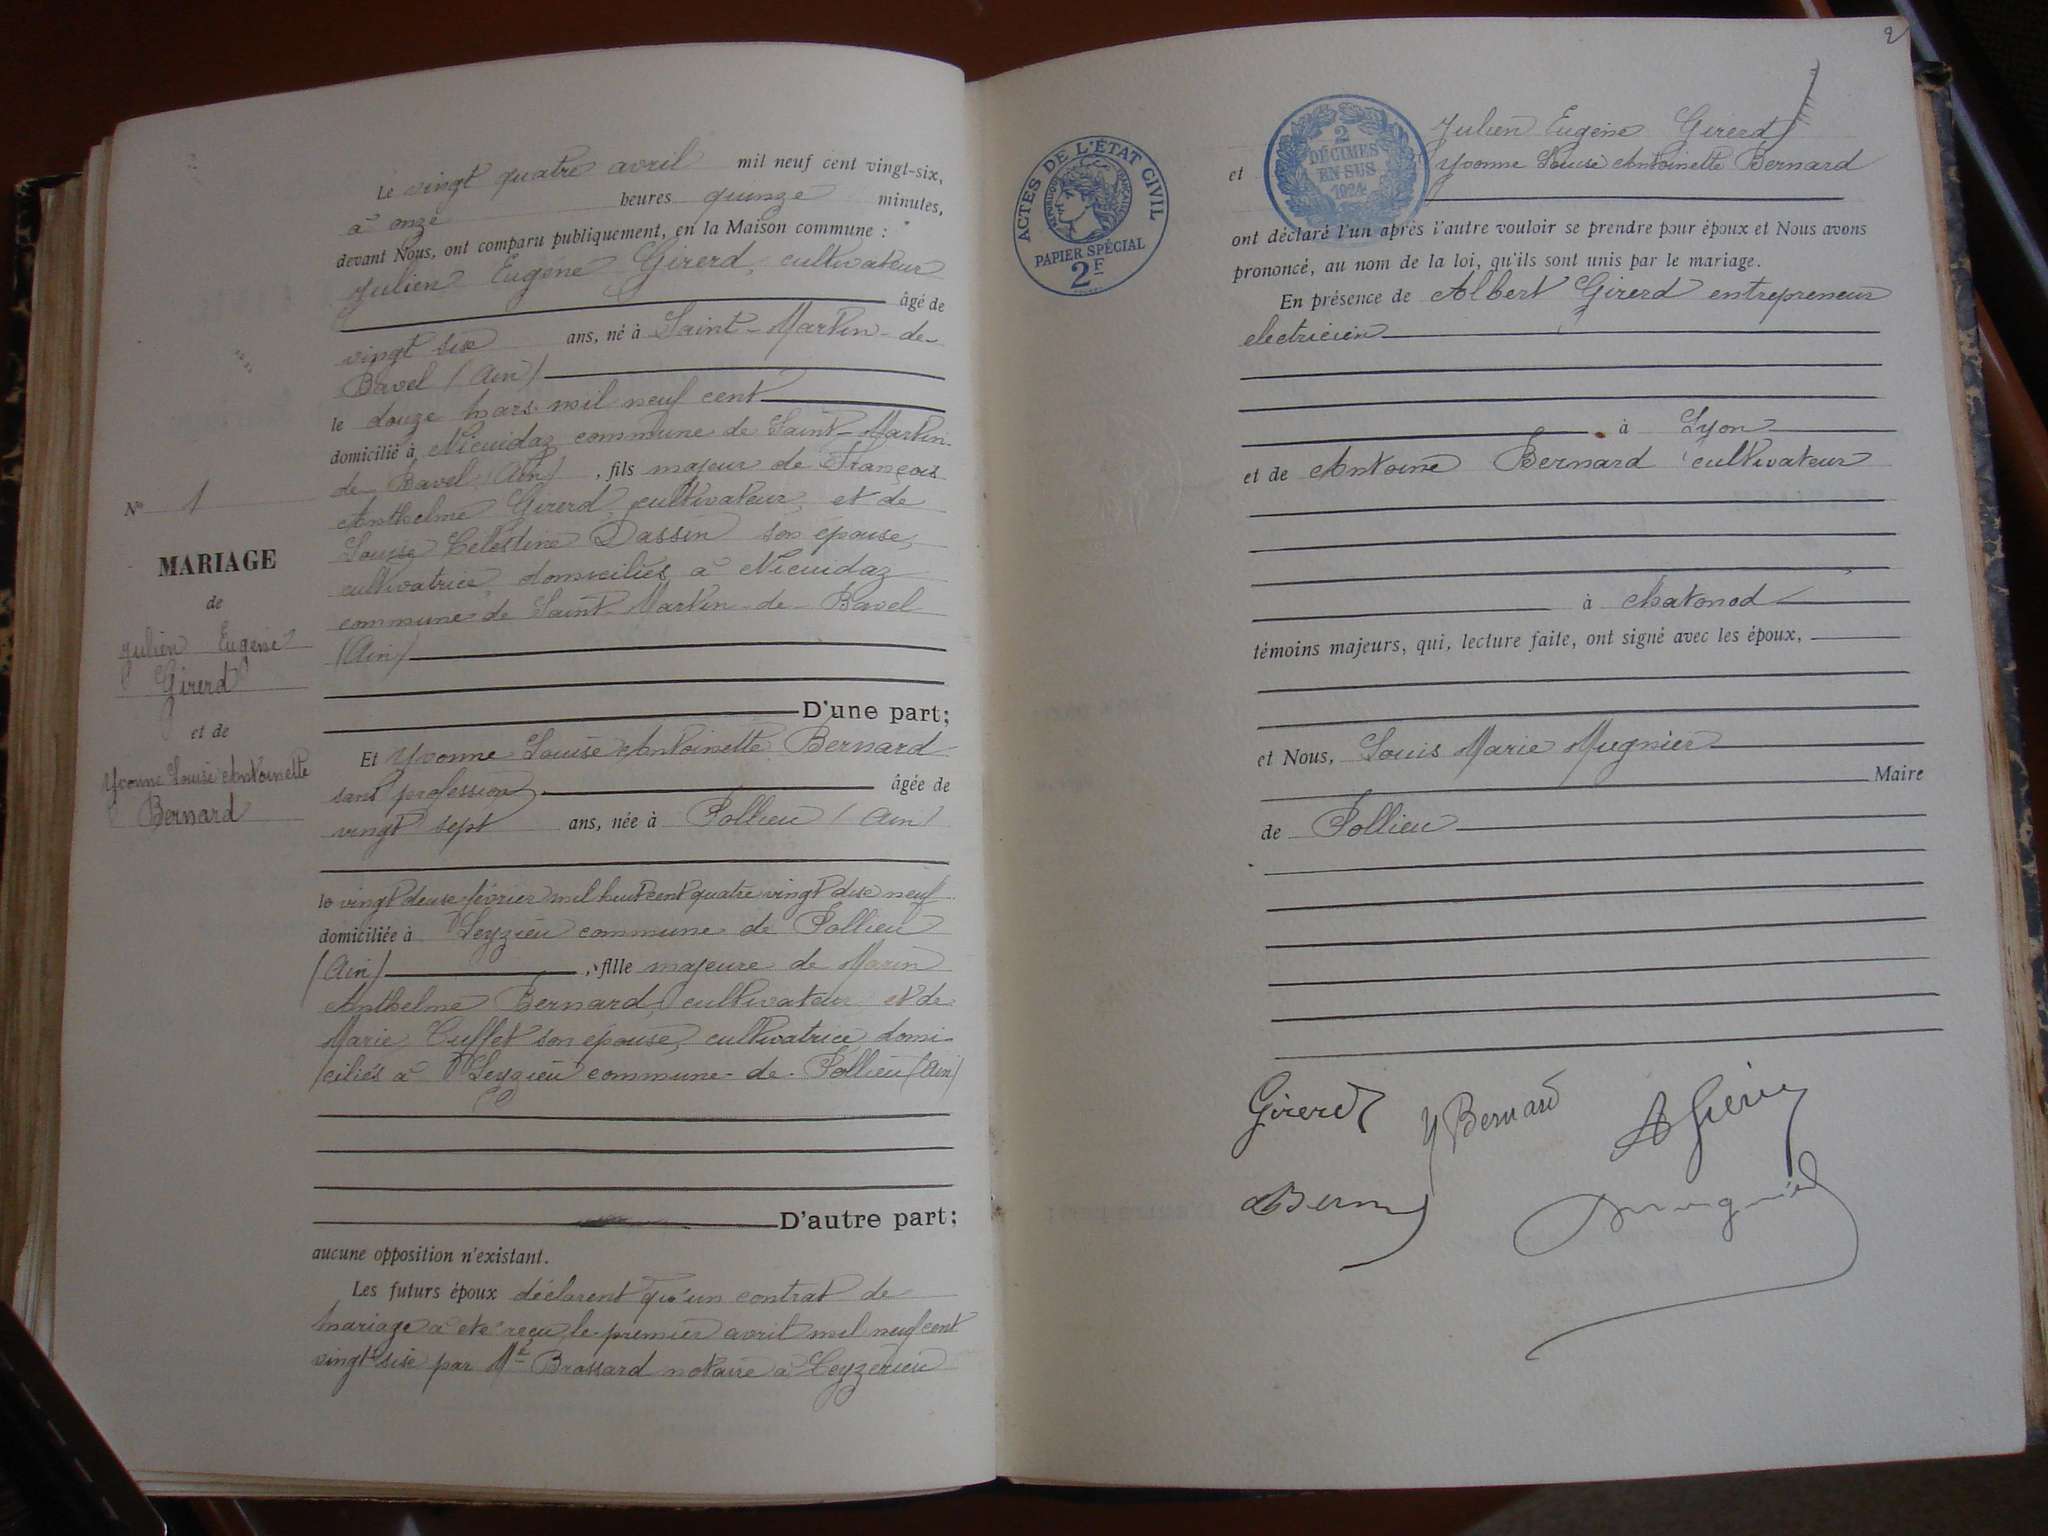 Le vingt quatre avril mil neuf cent vingt-six,
à onze heures quinze minutes,
devant Nous, ont comparu publiquement, en la Maison commune :
Julien Eugène Girerd, cultivateur
âgé de
vingt six ans, né à Saint-Martin-de-
Bavel (Ain)
le douze mars mil neuf cent
domicilié à commune de Saint-Martin-
de Bavel (Ain), fils majeur de François
Anthelme Girerd, cultivateur, et de
Louise Célestine Dassin son épouse,
cultivatrice, domiciliés à
commune de Saint-Martin-de-Bavel
(Ain)
D'une part;
Et Yvonne Louise Antoinette Bernard
sans profession âgée de
vingt sept ans, née à Pollieu (Ain)
le vingt deux février mil huit cent quatre vingt dix neuf
domiciliée à Leyzieu commune de Pollieu
(Ain), fille majeure de Marin
Anthelme Bernard, cultivateur et de
Marie Cuffet son épouse, cultivatrice domi-
ciliés à Leyzieu commune de Pollieu (Ain)
D'autre part;
aucune opposition n'existant.
Les futurs époux déclarent qu'un contrat de
mariage a été reçu le premier avril mil neuf cent
vingt six par Me Brossard notaire à Ceyzérieu
No 1
MARIAGE
de
Julien Eugène
Girerd
et de
Yvonne Louise Antoinette
Bernard
2
ACTES DE L'ÉTAT CIVIL
RÉPUBLIQUE FRANÇAISE
PAPIER SPÉCIAL
2F
2
DÉCIMES
EN SUS
1924
Julien Eugène Girerd
et Yvonne Louise Antoinette Bernard
ont déclaré l'un après l'autre vouloir se prendre pour époux et Nous avons
prononcé, au nom de la loi, qu'ils sont unis par le mariage.
En présence de Albert Girerd entrepreneur
electricien
à Lyon
et de Antoine Bernard cultivateur
à Chatonod
témoins majeurs, qui, lecture faite, ont signé avec les époux,
et Nous, Louis Marie Mugnier
Maire
de Pollieu
Girerd Y Bernard
Mugnier